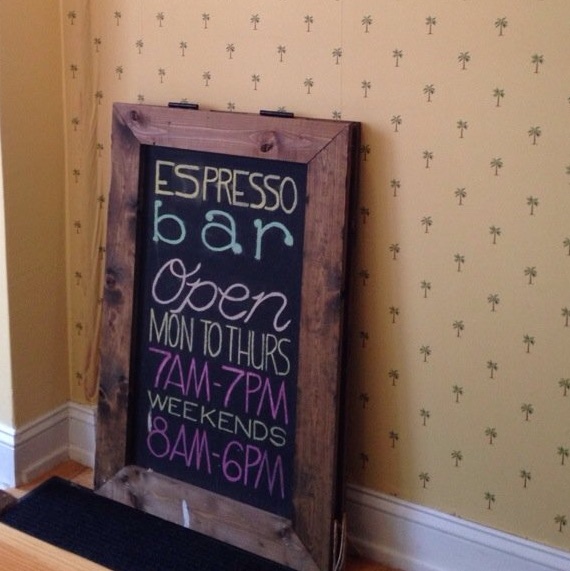 ESPRESSO
bar
Open
MON TO THURS
7AM-7PM
WEEKENDS
8AM-6PM